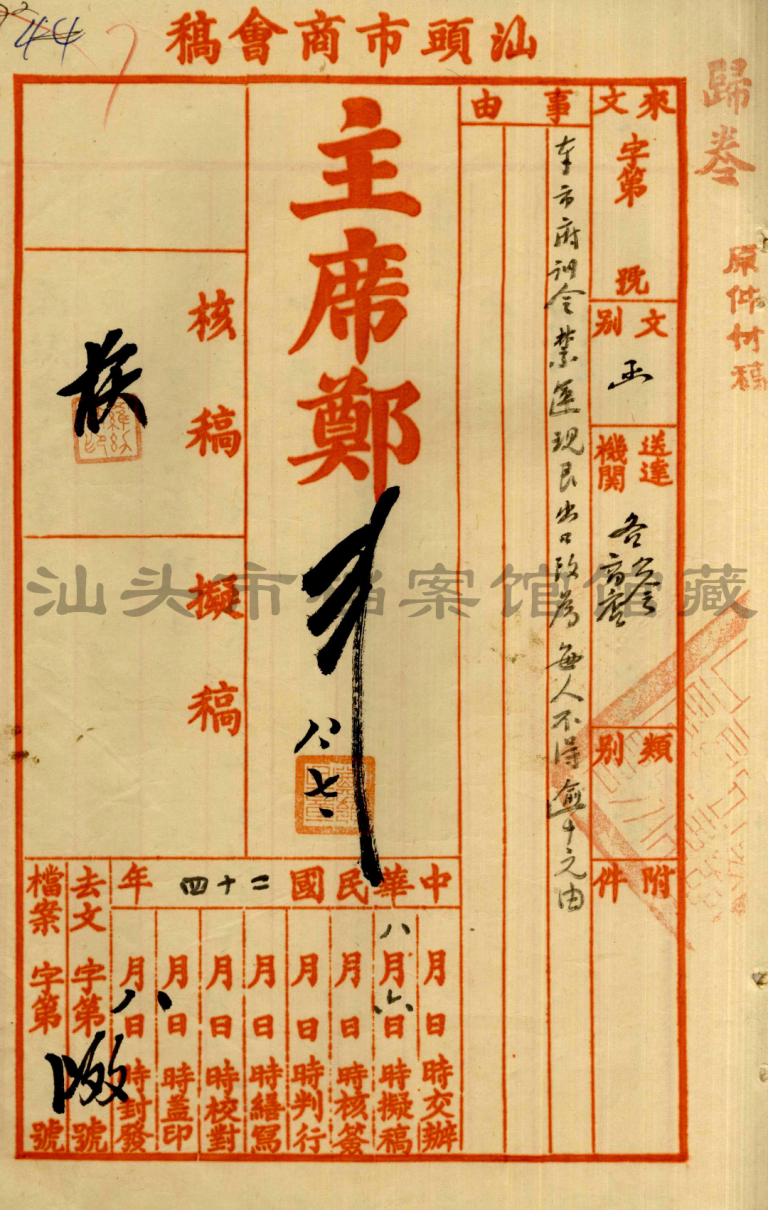 44
汕頭市商會稿
歸卷
原件付稿
來文
字第 號
文別
函
送達機關
各公會
商店
類別
附件
事由
奉市府訓令禁運現艮出口改為每人不得逾十元由
主席鄭
八、七、
核稿
擬稿
中華民國二十四年
月 日 時交辦
八月六日 時擬稿
月 日 時核簽
月 日 時判行
月 日 時繕寫
月 日 時校對
月 日 時蓋印
月八日 時封發
去文 字第 號
檔案 字第 號
汕头市档案馆馆藏